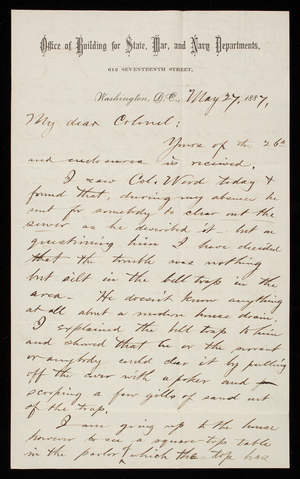 Office of Building for State, War, and Navy Departments,
612 SEVENTEENTH STREET,
Washington, D.C., May 27, 1887,
My dear Colonel:
Yours of the 26th
and enclosures is received.
I saw Col. Word today &
found that, during my absence he
sent for somebody to clear out the
sewer as he described it - but on
questioning him I have decided
that the trouble was nothing
but silt in the bell trap in the
area - He doesn't know anything
at all about a modern house drain.
I explained the bell trap to him
and showed that he or the servant
or anybody could clear it by pulling
off the cover with a poker and
scooping a few gills of sand out
of the trap.
I am going up to the house
however to see a square top table
in the parlor of which the top has